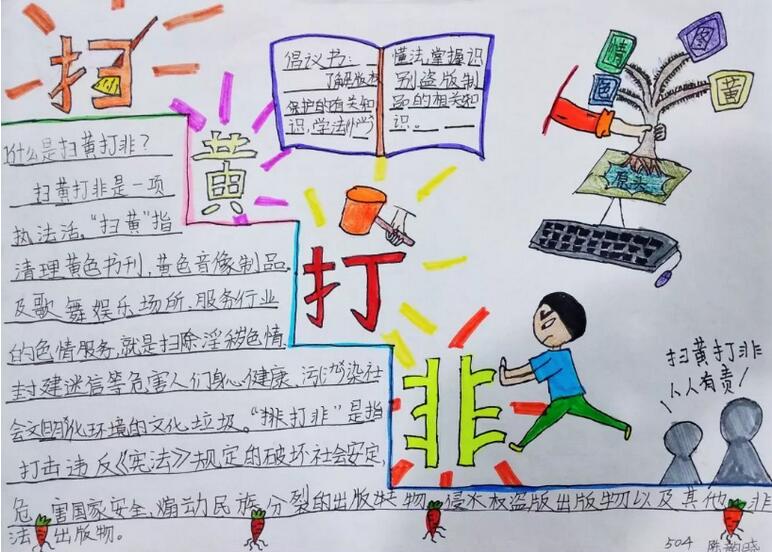 扫
黄
打
非
倡议书：
了解版权
保护的有关知
识，学法
懂法，掌握识
别盗版制
品的相关知
识。
情
图
色
黄
源头
什么是扫黄打非？
扫黄打非是一项
执法活，“扫黄”指
清理黄色书刊，黄色音像制品，
及歌舞娱乐场所、服务行业
的色情服务，就是扫除淫秽色情、
封建迷信等危害人们身心健康、污染社
会文明化环境的文化垃圾。“打非”是指
打击违反《宪法》规定的破坏社会安定，
危害国家安全、煽动民族分裂的出版物，侵权盗版出版物以及其他非
法出版物。
扫黄打非
人人有责！
504